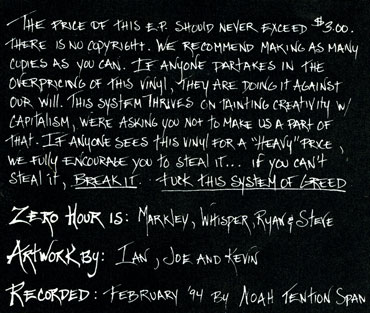 The price of this E.P. should never exceed $3.00.
There is no copyright. We recommend making as many
copies as you can. If anyone partakes in the
overpricing of this vinyl, they are doing it against
our will. This system thrives on tainting creativity w/
capitalism, we're asking you not to make us a part of
that. If anyone sees this vinyl for a "heavy" price,
we fully encourage you to steal it... if you can't
steal it, break it. Fuck this system of greed
Zero Hour is: Markley, Whisper, Ryan & Steve
Artwork by: Ian, Joe and Kevin
Recorded: February '94 by Noah Tention Span